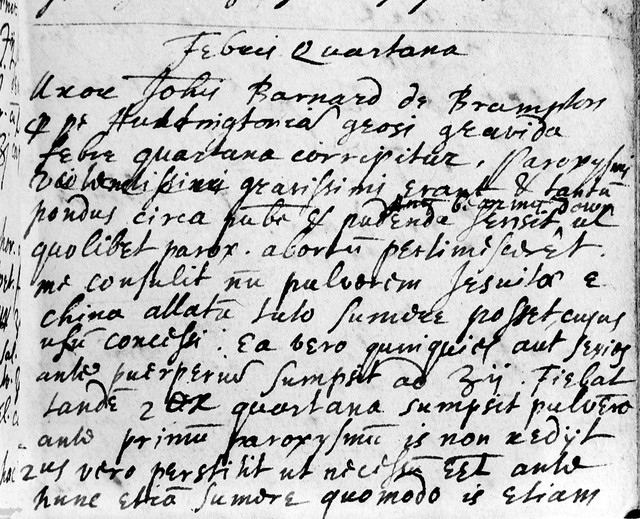 Febris Quartana
Uxor Johis Barnard de Brampton
pe Huntingtoniā grosi gravida
febre quartana corripitur. Paroxysmi
violentissimi gravissimi erant & tantū
pondus circa pube & pudenda sensit ut
bearing down
quolibet parox. abortū pertimisceret.
me consulit nū pulverem Jesuitar e
china allatā tuto sumere posset, cujus
usū concessi. Ea vero quinquies aut sexies
ante puerperiū sumpsit ad ʒij. Fiebat
tandē 2 quartana sumpsit pulverē
ante primū paroxysmū is non redijt
2us vero perstitit ut necessū Eēt ante
hunc etiā sumere quomodo is etiam